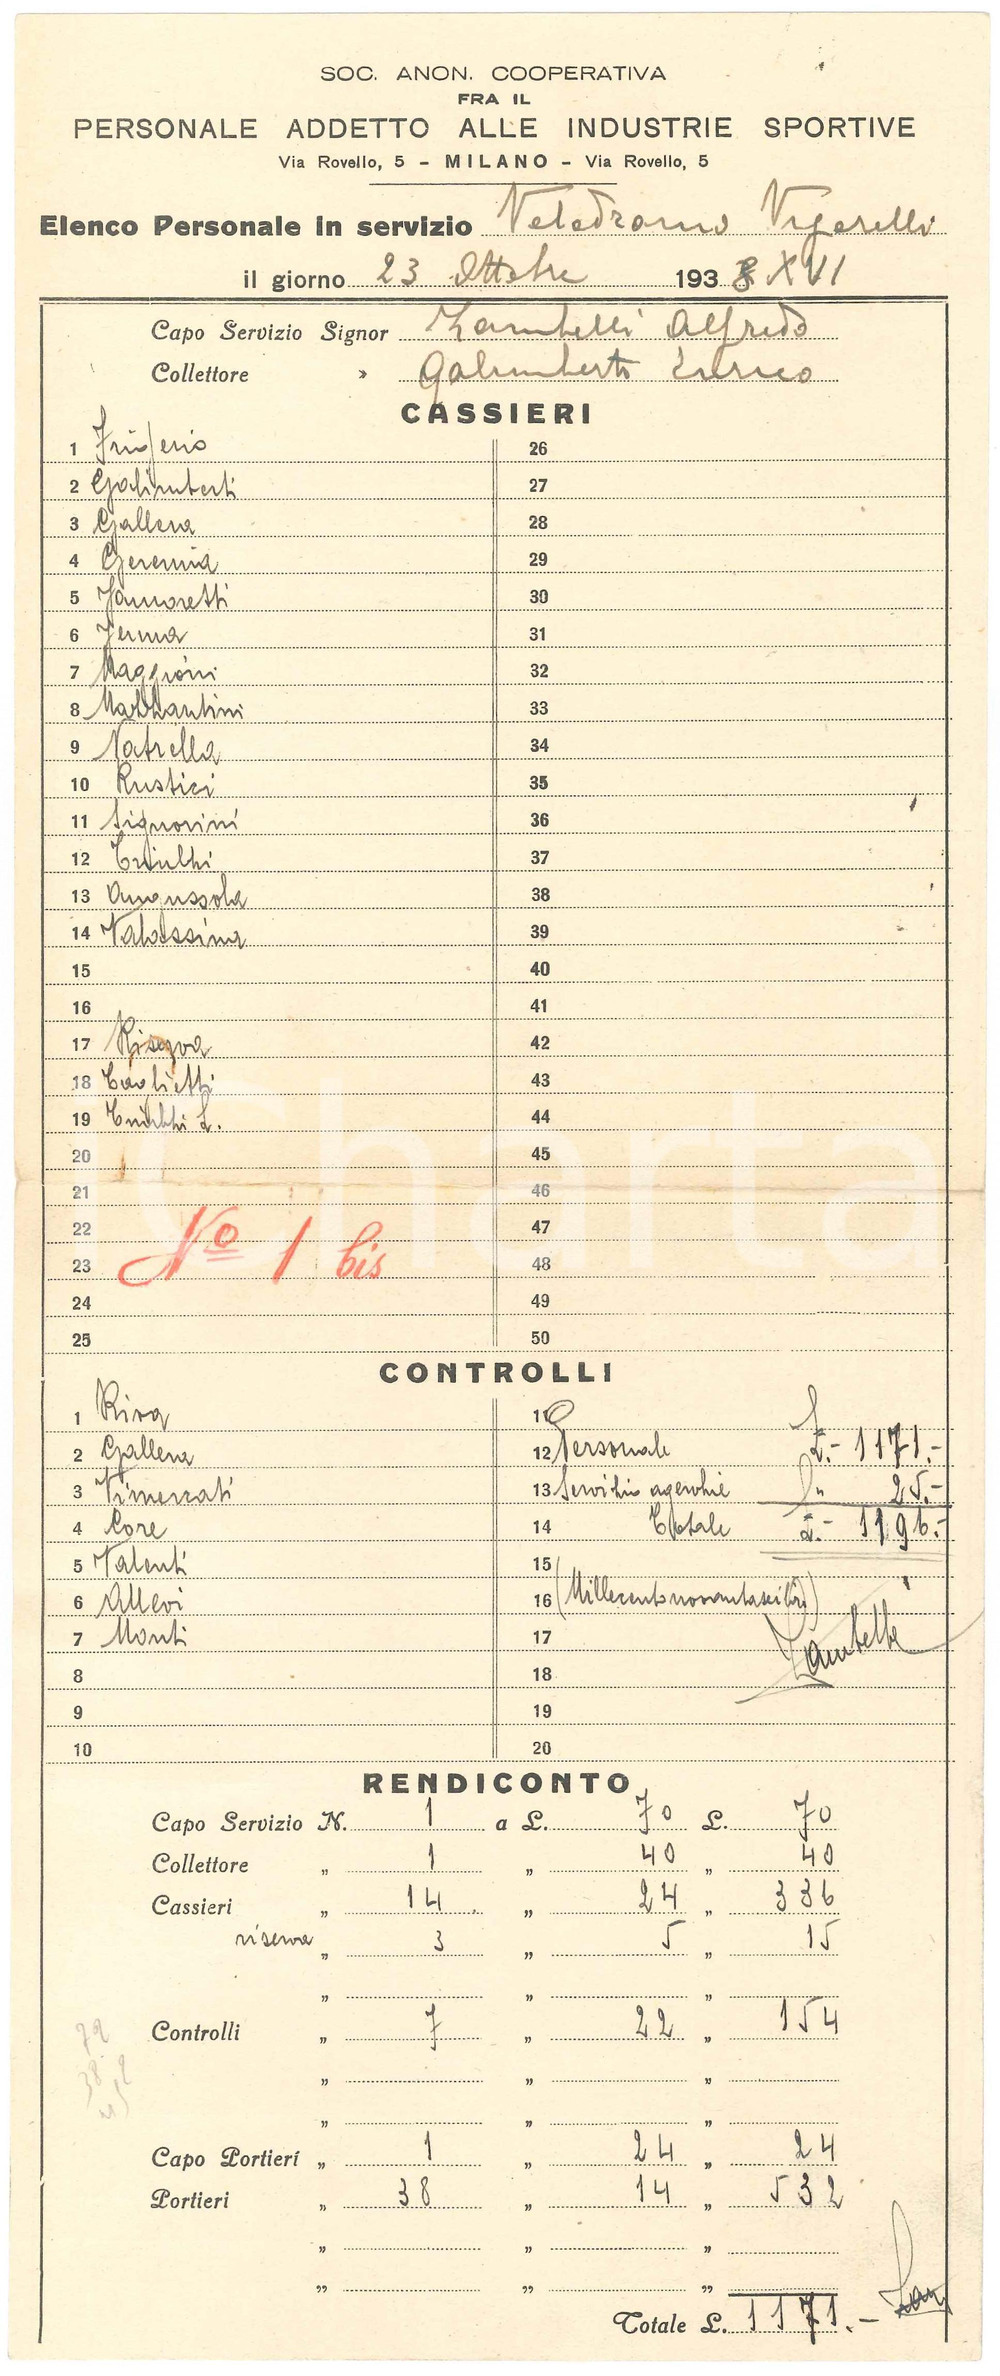 SOC. ANON. COOPERATIVA
FRA IL
PERSONALE ADDETTO ALLE INDUSTRIE SPORTIVE
Via Rovello, 5 - MILANO - Via Rovello, 5
Elenco Personale in servizio Velodromo Vigorelli
il giorno 23 Ottobre 1938 XVI
Capo Servizio Signor Zambelli Alfredo
Collettore » Galimberti Enrico
CASSIERI
1 Frigerio 26
2 Galimberti 27
3 Gallera 28
4 Geremia 29
5 30
6 31
7 Maggioni 32
8 Mazzantini 33
9 Natrella 34
10 Rustici 35
11 Signorini 36
12 37
13 Angussola 38
14 Valassina 39
15 40
16 41
17 Riserva 42
18 Taglietti 43
19 L. 44
20 45
21 46
22 47
23 48
24 49
25 50
Nº 1 bis
CONTROLLI
1 Riva 11
2 Gallera 12 Personale £.- 1171.-
3 Vimercati 13 Servizio agenzie 25.-
4 Core 14 Totale £.- 1196.-
5 Valenti 15
6 Allevi 16 (Millecentonovantasei lire)
7 Monti 17 Zambelli
8 18
9 19
10 20
RENDICONTO
Capo Servizio N. 1 a L. 70 L. 70
Collettore „ 1 „ 40 „ 40
Cassieri „ 14 „ 24 „ 336
riserva „ 3 „ 5 „ 15
„ „ „
Controlli „ 7 „ 22 „ 154
„ „ „
„ „ „
Capo Portieri „ 1 „ 24 „ 24
Portieri „ 38 „ 14 „ 532
„ „ „
„ „ „
Totale L. 1171.-
iCharta